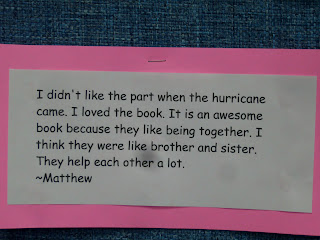 I didn't like the part when the hurricane
came. I loved the book. It is an awesome
book because they like being together. I
think they were like brother and sister.
They help each other a lot.
~Matthew